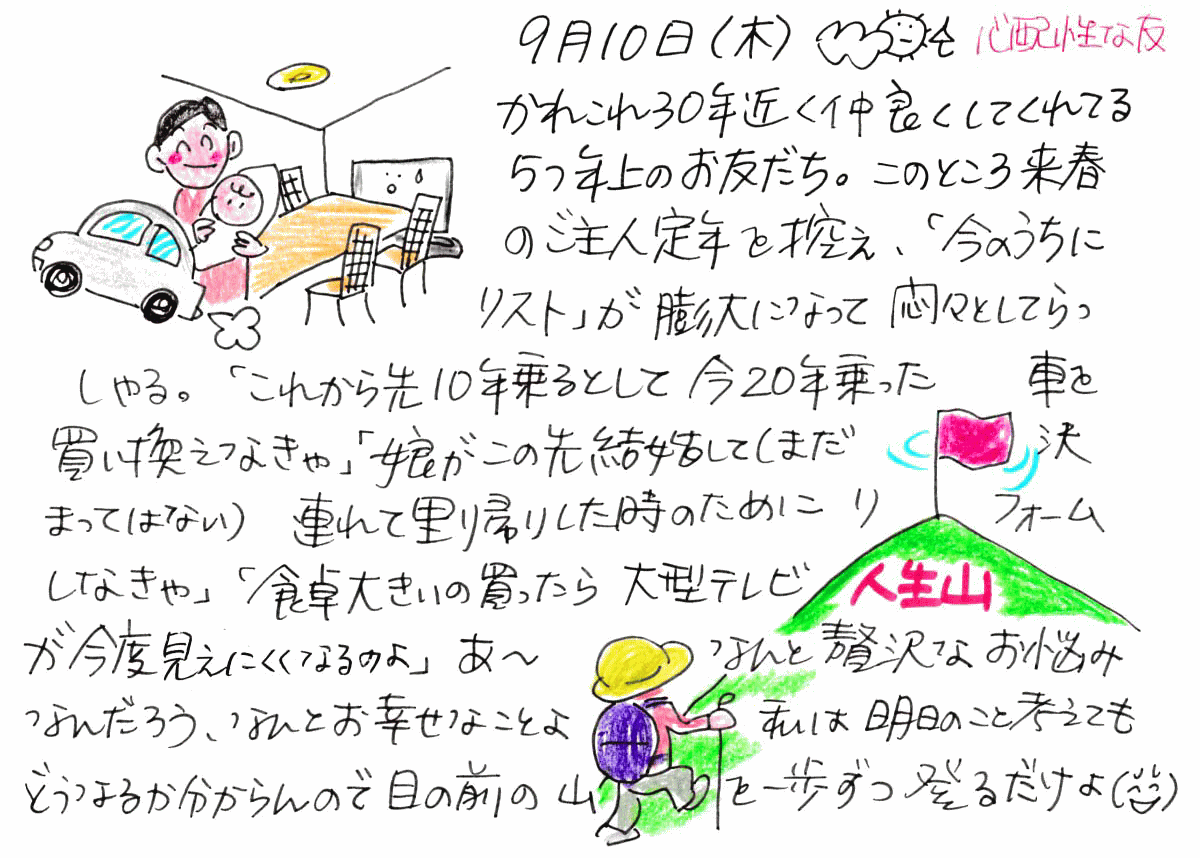 9月10日(木) 心配性な友
かれこれ30年近く仲良くしてくれてる
5つ年上のお友だち。このところ来春
のご主人定年を控え、「今のうちに
リスト」が膨大になって悶々としてらっ
しゃる。「これから先10年乗るとして今20年乗った車を
買い換えなきゃ」「娘がこの先結婚して(まだ決
まってはない) 連れて里帰りした時のためにリフォーム
しなきゃ」「食卓大きいの買ったら大型テレビ
人生山
が今度見えにくくなるのよ」あ〜なんと贅沢なお悩み
なんだろう、なんとお幸せなことよ 私は明日のこと考えても
どうなるか分からんので目の前の山を一歩ずつ登るだけよ(笑)